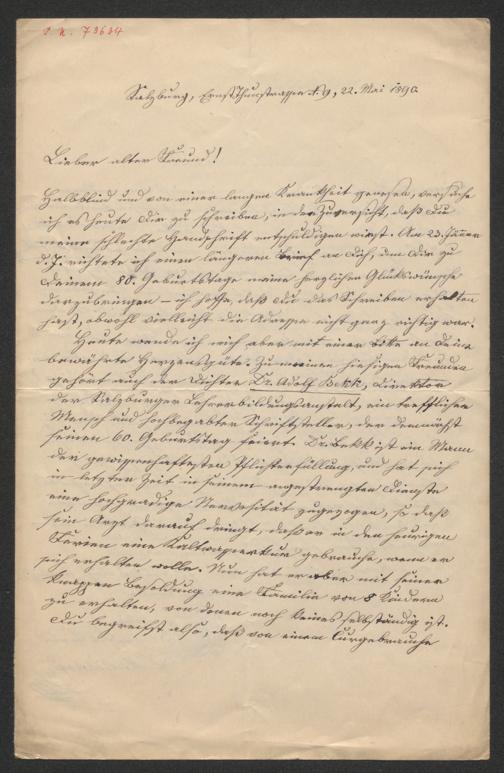 I. N. 79634
Salzburg, Ernst Thunstrasse N. 9, 22. Mai 1890
Lieber alter Freund!
Halbblind und von einer langen Krankheit genesen, versuche
ich es heute Dir zu schreiben, in der Zuversicht, daß Du
meine schlechte Handschrift entschuldigen wirst. Am 23. Jänner
d. J. richtete ich einen längeren Brief an Dich, um Dir zu
Deinem 80. Geburtstage meine herzlichen Glückwünsche
darzubringen – ich hoffe, daß Du das Schreiben erhalten
hast, obwohl vielleicht die Adresse nicht ganz richtig war.
Heute wende ich mich aber mit einer Bitte an Deine
bewährte Herzensgüte. Zu meinen hiesigen Freunden
gehört auch der Dichter Dr. Adolf Bekk, Direktor
der Salzburger Lehrerbildungsanstalt, ein trefflicher
Mensch und hochbegabter Schriftsteller, der demnächst
seinen 60. Geburtstag feiert. Dr. Bekk ist ein Mann
der gewissenhaftesten Pflichterfüllung, und hat sich
in letzter Zeit in seinem angestrengten Dienste
eine hochgradige Nervosität zugezogen, so daß
sein Arzt darauf dringt, daß er in den heurigen
Ferien eine Kaltwasserkur gebrauche, wenn er
sich erhalten wolle. Nun hat er aber mit seiner
knappen Besoldung eine Familie von 8 Kindern
zu erhalten, von denen noch keines selbständig ist.
Du begreifst also, daß von einem Curgebrauche